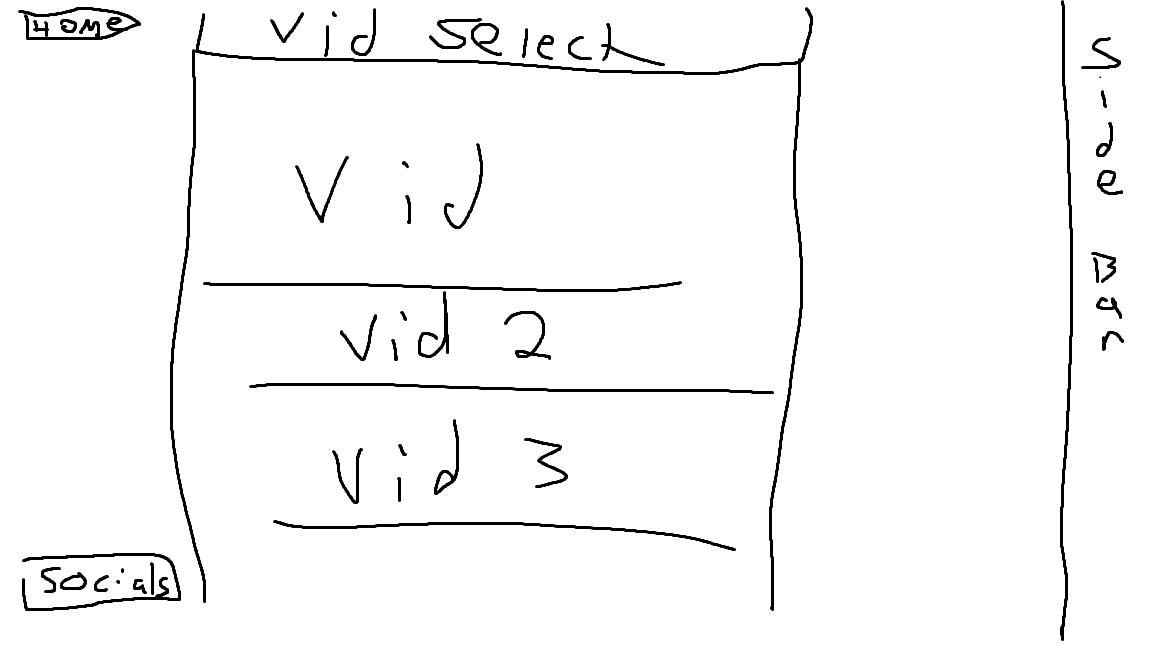 HOME
Vid Select
Vid
Vid 2
Vid 3
Socials
Side Bar